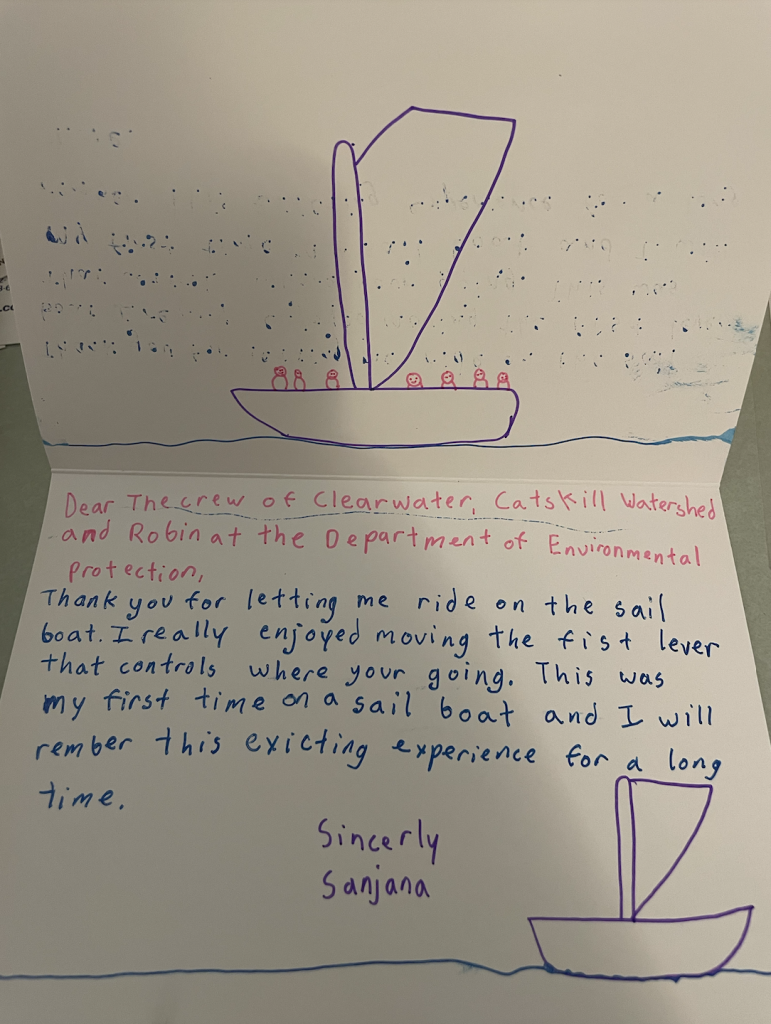 Dear The crew of Clearwater, Catskill Watershed
and Robin at the Department of Environmental
Protection,
Thank you for letting me ride on the sail
boat. I really enjoyed moving the fist lever
that controls where your going. This was
my first time on a sail boat and I will
rember this exicting experience for a long
time.
Sincerly
Sanjana